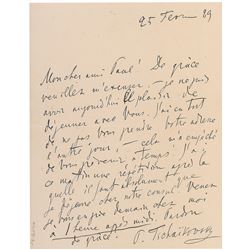 25 Fevr 89
Mon cher ami Paul! De grâce
veuillez m'excuser – je ne puis
avoir aujourd'hui le plaisir de
déjeuner avec Vous. J'ai eu tort
de ne pas Vous prendre Votre adresse
l'autre jour; – cela m'a empêché
de Vous prévenir à temps! J'ai
ce matin une répétition après la
quelle il faut absolument que
je déjeune chez notre consul. Venez
je Vous en prie demain chez moi
à 1 heure après midi. Pardon
de grâce! P. Tschaïkovsky